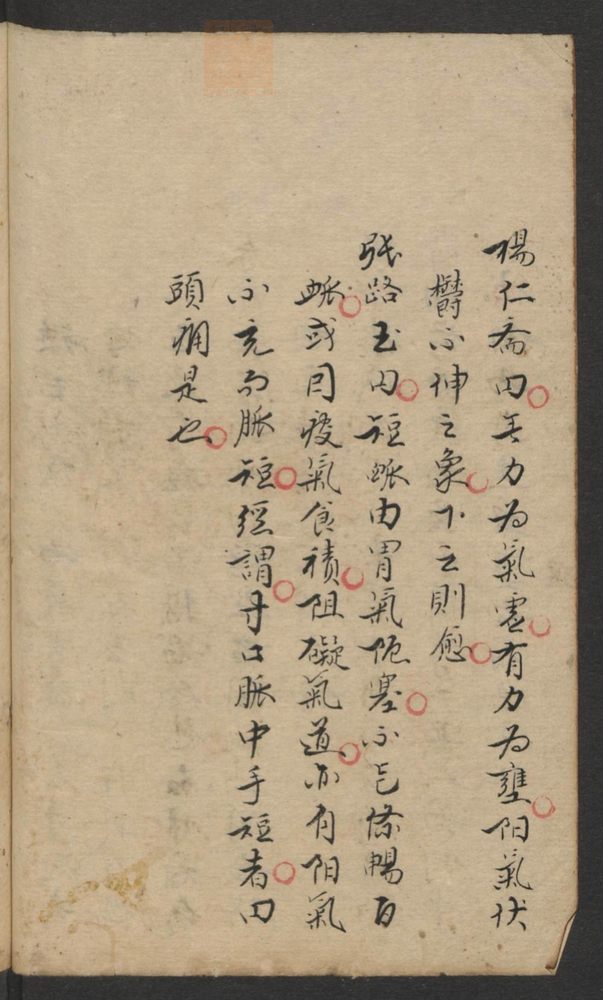 楊仁斎曰無力為氣虛有力為壅阳氣伏
欝不伸之象下之則愈
張路玉曰短脈由胃氣阨塞不能條暢百
脈或因痰氣食積阻礙氣道亦有阳氣
不充而脈短經謂寸口脈中手短者曰
頭痛是也